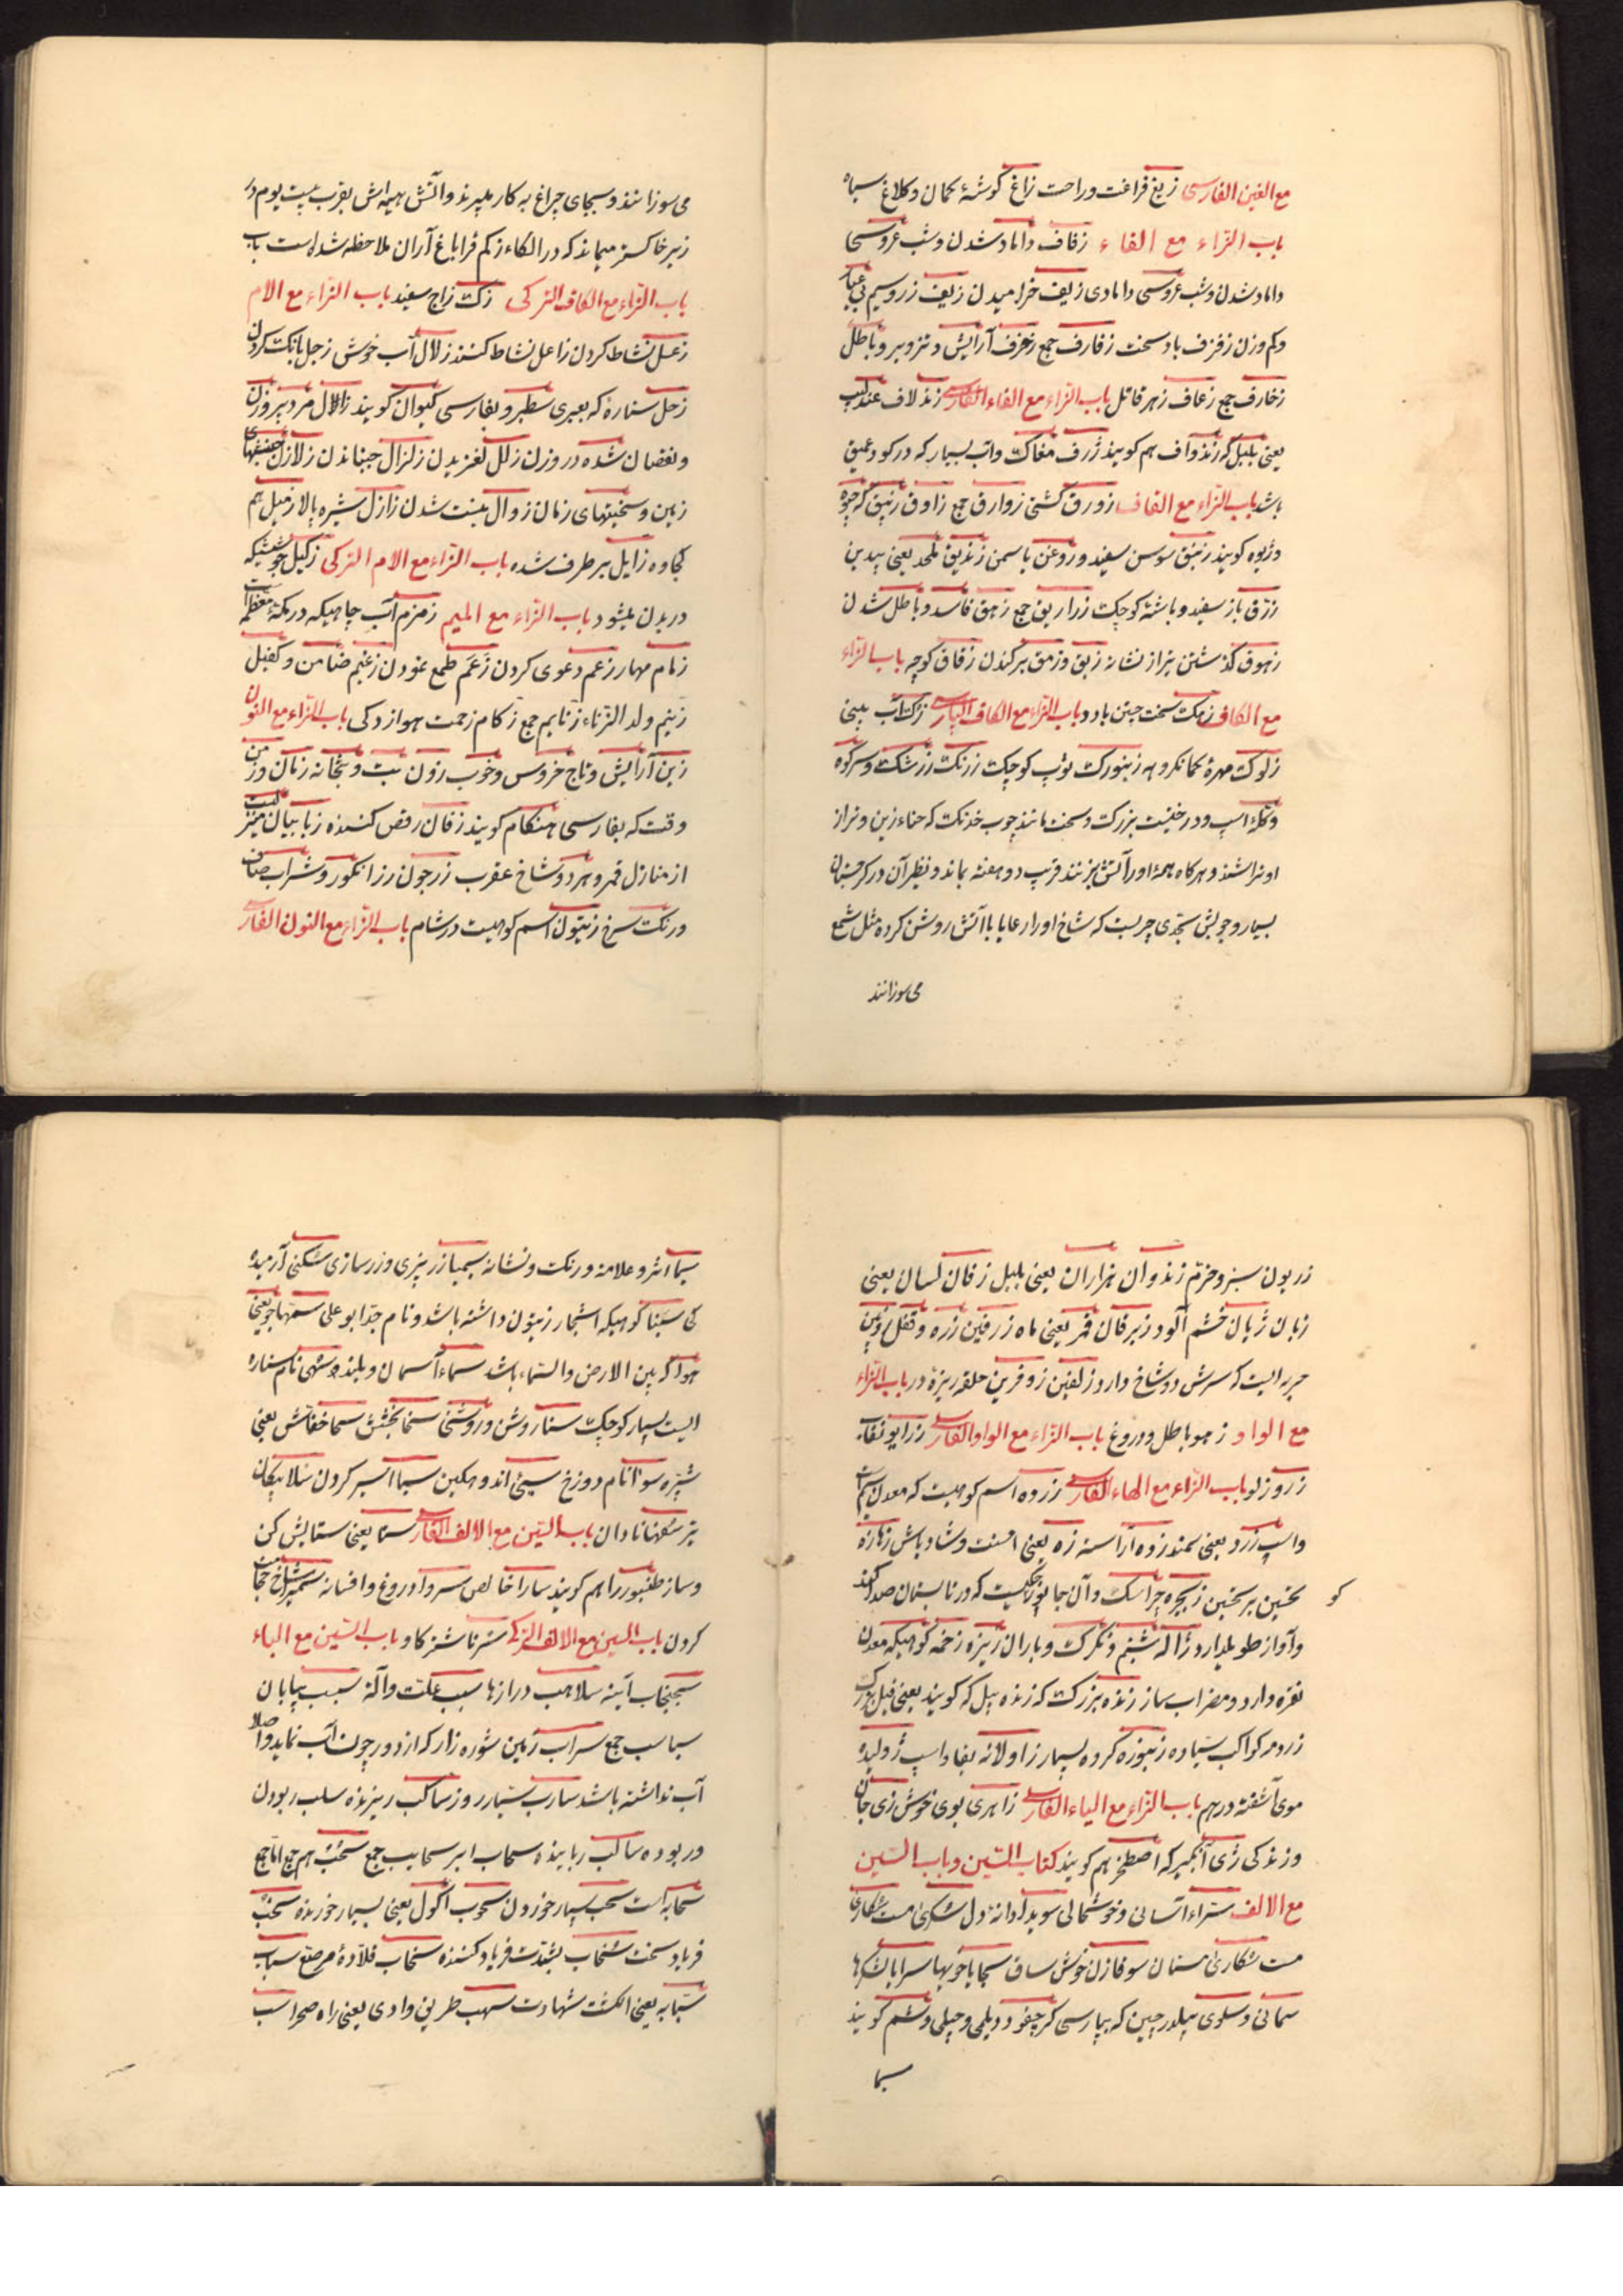 مع الغین الفارسی زیغ فراغت وراحت زاغ کوشهٔ کمان وکلاغ سیاه
باب الزاء مع الفاء زفاف داماد شدن وشب عروسی
داماد شدن وشب عروسی دامادی زیف خرامیدن زیف زر وسیم بی عیار
وکم وزن زفزف باد سخت زفارف جمع زخرف آرایش وتزویر وباطل
زخارف جمع زعاف زهر قاتل باب الزاء مع الفاء الفارسی زند لاف عندلیب
یعنی بلبل که زندواف هم کویند ژرف مغاک وآب بسیار که در کو وعمیق
باشد باب الزاء مع القاف زورق کشتی زوارق جمع زاوق زیبق که جیوه
وژیوه کویند زنبق سوسن سفید وروغن یاسمن زندیق ملحد یعنی بیدین
زرق باز سفید وباشهٔ کوچک زراریق جمع زهق فاسد وباطل شدن
زهوق کذشتن تیر از نشانه زبق وزمق برکندن زقاق کوچه باب الزاء
مع الکاف زهک سخت جستن باد باب الزاء مع الکاف الفارسی زک آب بینی
زلوک مهرهٔ کمانکروهه زنبورک توپ کوچک زرنک زرشک وسرکوه
وکلهٔ اسپ ودرختیست بزرک وسخت مانند چوب خدنک که حناء زین وتیر از
او تراشند وهرکاه همهٔ او را آتش بزنند قریب دو هفته بماند ونظیر آن در کرجستان
بسیار وچوبش بحدی چربست که شاخ او را رعایا با آتش روشن کرده مثل شمع
می‌سوزانند
می‌سوزانند وبجای چراغ به کار میبرند وآتش هیمه‌اش بقرب بیست یوم در
زیر خاکستر میماند که در الکاء زکم قراباغ آران ملاحظه شده است باب
باب الزاء مع الکاف الترکی زک زاج سفید باب الزاء مع الام
زعل نشاط کردن زاعل نشاط کننده زلال آب خوش زجل بانک کردن
زحل ستارهٔ که بعبری سطبر وبفارسی کیوان کویند زالال مرد پیر وزن
ونقصان شده در وزن زلل لغزیدن زلزال جنبانیدن زلازل جنبشهای
زمین وسختیهای زمان زوال نیست شدن زازل شیره پالا زمیل هم
کجاوه زایل برطرف شده باب الزاء مع الام الترکی زکیل جوششیکه
در بدن میشود باب الزاء مع المیم زمزم آب چاهیکه در مکهٔ معظمه است
زمام مهار زعم دعوی کردن زعم طمع نمودن زعیم ضامن وکفیل
زنیم ولد الزناء زنایم جمع زکام زحمت هوازدکی باب الزاء مع النون
زین آرایش وتاج خروس وخوب زون بت وبتخانه زنان وزمن
وقت که بفارسی هنکام کویند زفان رقص کننده زبانیان منزلیست
از منازل قمر وهر دو شاخ عقرب زرجون رز انکور وشراب صاف
ورنک سرخ زیتون اسم کوهیست در شام باب الزاء مع النون الفارسی
زریون سبز وخرم زندوان هزاران یعنی بلبل زفان لسان یعنی
زبان ژیان خشم آلود زبرقان قمر یعنی ماه زرفین زره وقفل
حربه‌ایست که سرش دو شاخ دارد زلفین زوفرین حلقه ریزهٔ در باب الزاء
مع الواو زهو باطل ودروغ باب الزاء مع الواو الفارسی
زرو زلو باب الزاء مع الهاء الفارسی زروه اسم کوهیست که معدن سیم است
واسپ زرد یعنی سمند زوه آراسته زه یعنی احسنت وشاد باش زهازه
تحسین بر تحسین زنجره چراسک وآن جانوریست که در تابستان صدا کند
کو
وآواز طویل دارد ژاله شبنم وتکرک وباران ریزه زخمه کوهیکه معدن
نقره دارد ومضراب ساز زنده بزرک که زنده پیل که کویند یعنی فیل بزرک
زرد مر کواکب سیاره زنبوزه کروه بسیار زاولانه بقاو اسپ ژولیده
موی آشفته درهم باب الزاء مع الیاء الفارسی زاهری بوی خوش زی جان
وزندکی ژی آبکیر که اصطخر هم کویند کتاب السین وباب السین
مع الالف سراء آسانی وخوشحالی سویدا دانهٔ دل سکری مست سکاری
مست سکاری مستان سوقا زن خوش ساق سجایا خویها سرایا لشکرها
سمانی وسلوی بیلدرچین که بپارسی کرچفو ودیلمی وچیلی وشم کویند
سیما
سیما اثر وعلامه ورنک ونشانه سیمیا زر ریزی وزر سازی سکنی آرمیده
کی سینا کوهیکه اشجار زیتون داشته باشد ونام جد ابو علی سمهاجو یعنی
هوا که بین الارض والسماء باشد سماء آسمان وبلند سهی نام ستاره
ایست بسیار کوچک سنا روشن وروشنی سخا بخشش سحا خفاش یعنی
شبپره سوآ نام دوزخ سیئ اندوهکین سبا اسیر کردن سلا پیکان
تیر سفها نادان باب السین مع الالف الفارسی ستا یعنی ستایش کن
وساز طنبور را هم کویند سارا خالص سروا دروغ وافسانه سمیرا شاخ حجامت
کردن باب السین مع الالف الترکی سرنا شتر کاو باب السین مع الباء
سجنجاب آینه سلاهب درازها سبب علت وآلة سبسب بیابان
سباسب جمع سراب زمین شوره زار که از دور چون آب نماید واصلا
آب نداشته باشد سارب سیار روز ساکب ریزنده سلب ربودن
وربوده ساکب رباینده سحاب ابر سحایب جمع سحب هم جمع اما جمع
سحابه است سحب بسیار خوردن سحوب اکول یعنی بسیار خورنده سخب
فریاد سخت سخاب بشدت فریاد کننده سخاب قلادهٔ مرصع سباب
سبابه یعنی انکشت شهادت سهب طریق وادی یعنی راه صحرا سب